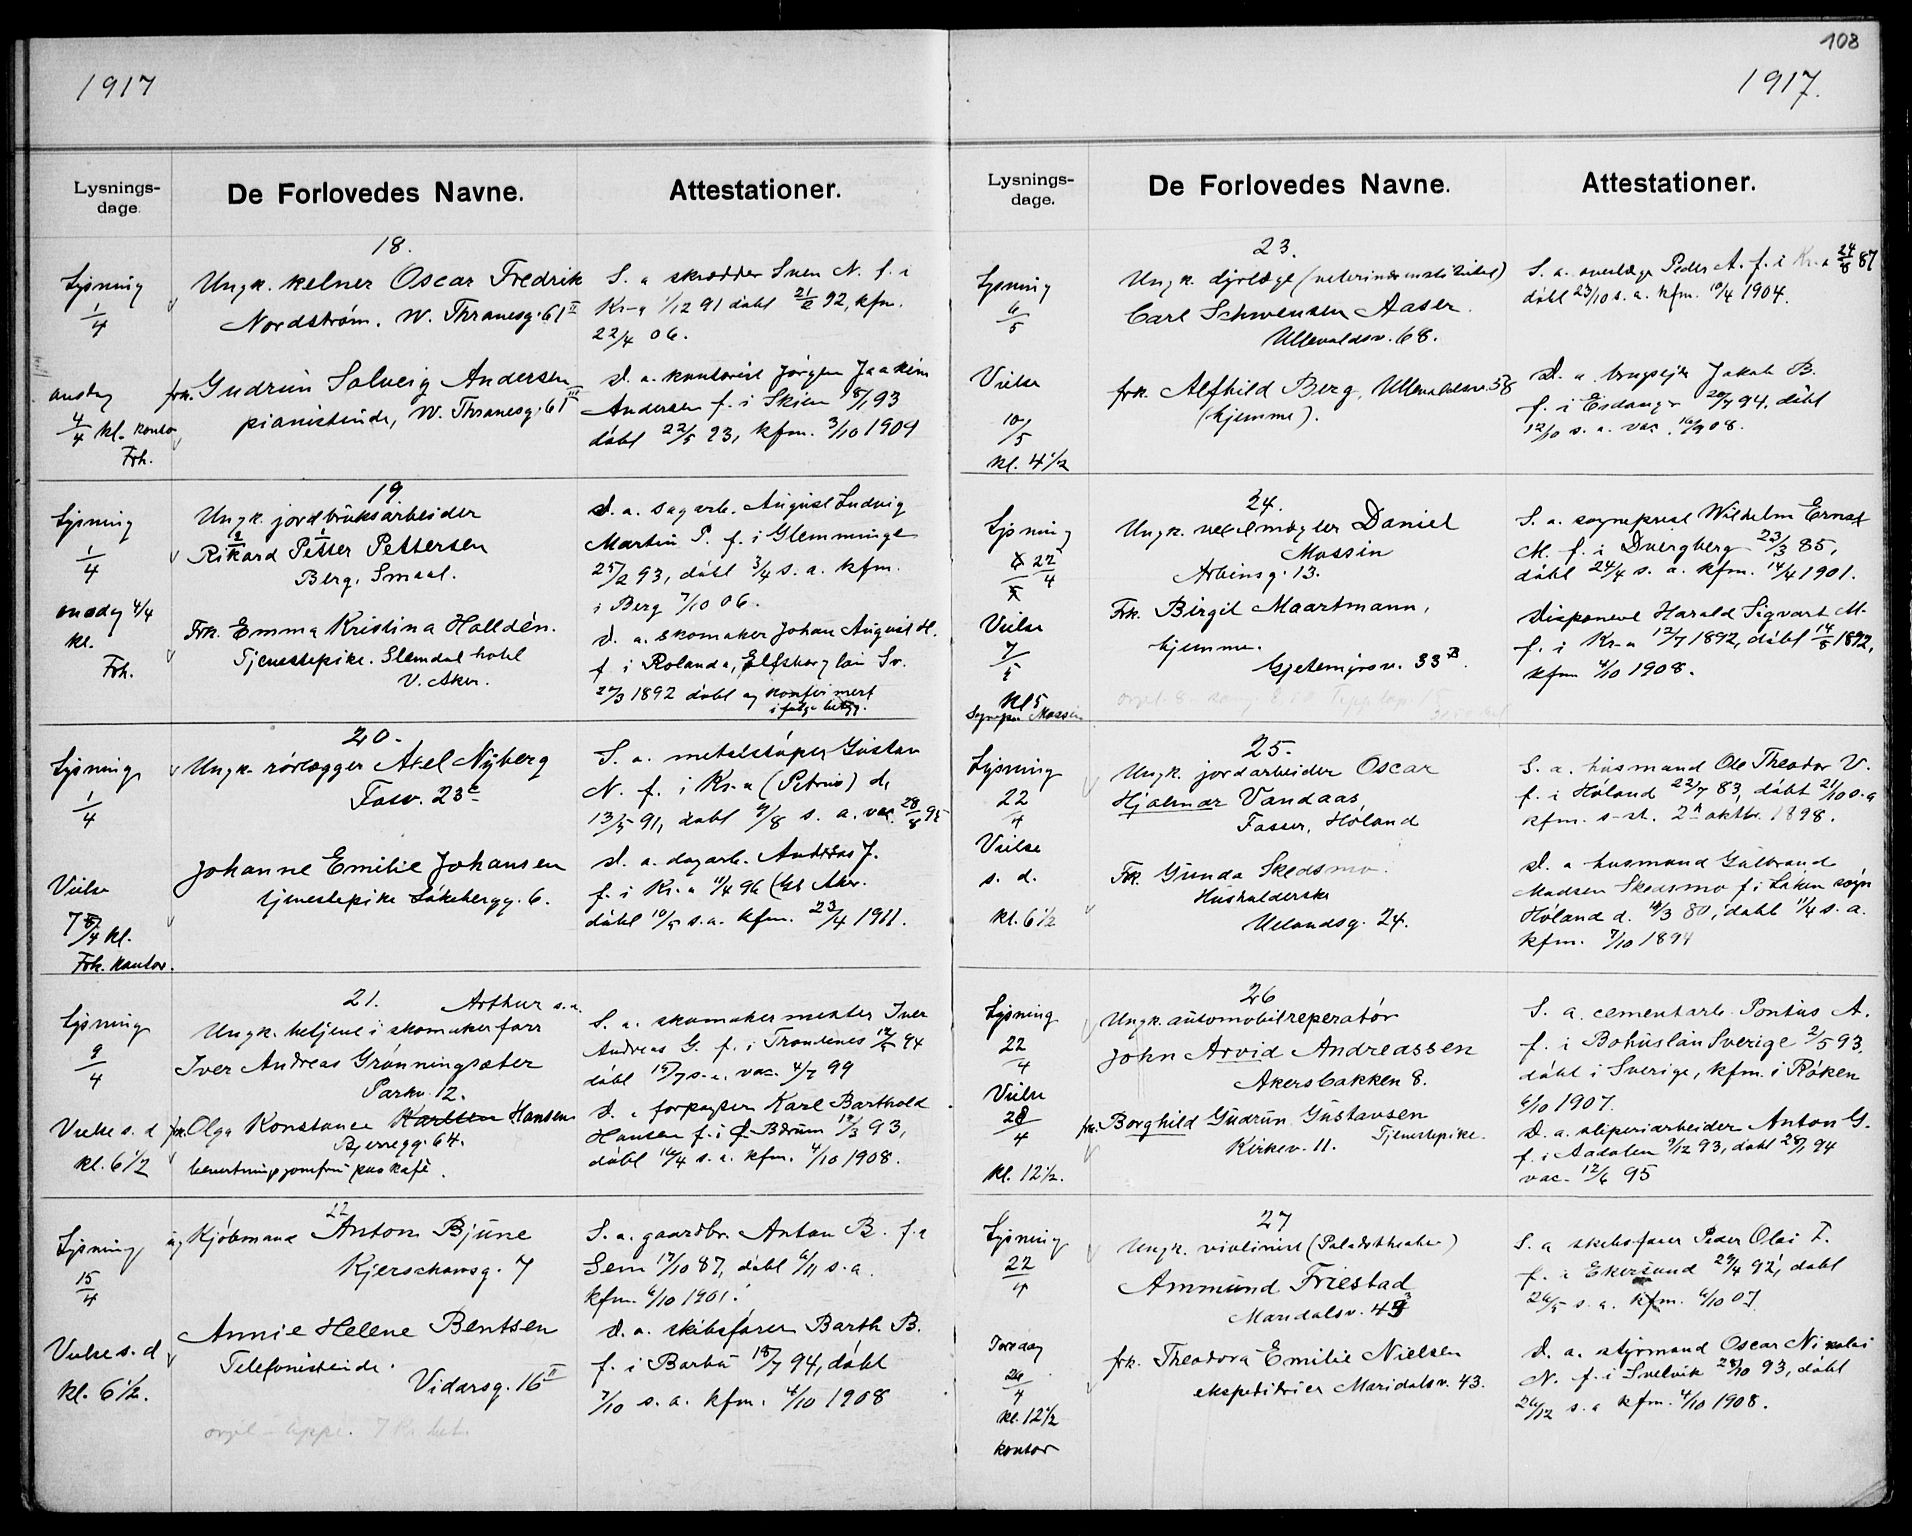 108
1917
1917.
Lysnings-
dage.
De Forlovedes Navne.
Attestationer.
18.
Lysning
1/4
Ungk. kelner Oscar Fredrik
Nordstrøm. W. Thranesg. 61 II
S. a skrædder Sven N. f. i
Kr-a 1/12 91 døbt 21/2 92, kfm.
22/4 06.
onsdag
4/4 kl. kontor
Frh.
frk. Gudrun Solveig Andersen
pianistinde, W. Thranesg. 61 III
D. a. kontorist Jørgen Joakim
Andersen f. i Skien 93
døbt 22/5 93, kfm. 3/10 1909
19.
Lysning
1/4
Ungk. jordbruksarbeider
Rikard Petter Pettersen
Berg, Smaal.
S. a. sagarb. August Ludvig
Martin P. f. i Glemminge
25/2 93, døbt 3/4 s. a. kfm.
i Berg 7/10 06.
onsdag 4/4
kl.
Frh.
Frk. Emma Kristina Halldén.
Tjenestepike. Slemdal hotel
V. Aker.
D. a. skomaker Johan August H.
f i Rolanda, Elfsborg län Sv.
1892 døbt og konfirmert
ifølge betyg.
20.
Lysning
1/4
Ungk. rørlægger Axel Nyberg
S. a. metalstøper Gustav
N. f. i Kr-a (Petrus) d.
13/5 91, døbt 9/8 s. a. vac. 28/8 95
Vielse
7/4 kl.
Frh. kontor.
Johanne Emilie Johansen
tjenestepike Løkebergg. 6.
D. a. dagarb. Andreas J.
f. i Kr. a 11/4 96 (Gl. Aker.
døbt 10/5 s.a. kfm. 23/4 1911.
21.
Lysning
9/4
Arthur s.a.
Ungk. betjent i skomakerforr
Iver Andreas Grønningsæter
Parkv. 12.
S. a. skomakermester Iver
Andreas G. f. i Trondenes 94
døbt 15/7 s.a. vac. 4/7 99
Vielse s. d
kl. 6 1/2
fr. Olga Konstance Karlsen Hansen
Bjerregg. 64.
bevertningsjomfru paa kafé.
D. a forpagter Karl Barthold
Hansen f. i Bærum 12/3 93,
døbt 16/4 s. a. kfm. 4/10 1908.
22
Lysning
15/4
ug Kjøbmand Anton Bjune
Kjerschowsg. 7
S. a. gaardbr. Anton B. f. i
Sem 17/10 87, døbt 6/11 s.a.
kfm. 6/10 1901.
Vielse s. d
kl. 6 1/2.
Annie Helene Bentsen
Telefonistinde.
Vidarsg. 16 II
D. a. skibsfører Barth B.
f. i Barbu 18/7 94, døbt
7/10 s. a. kfm. 4/10 1908
Lysnings-
dage.
De Forlovedes Navne.
Attestationer.
23.
Lysning
6/5
Ungk. dyrlæge (veterinærinstitutet)
Carl Schwensen Aaser.
Ullevaldsv. 68.
S. a. overlæge Peder A. f. i Kr. a 24/8 87
døbt 23/10 s. a. kfm. 10/4 1904.
Vielse
10/5
kl. 4 1/2
frk. Alfhild Berg, Ullevaldsv. 58
(hjemme).
D. a brugseier Jakob B.
f. i Eidanger 94, døbt
12/10 s. a. vac. 16/9 08.
24.
Lysning
22/4
Ungk. vekselmægler Daniel
Mossin
Arbinsg. 13.
S. a. sogneprest Wilhelm Ernst
M. f. i Dvergberg 23/3 85,
døbt 24/4 s. a. kfm. 14/4 1901.
Vielse
7/5
kl 5
Sognepr. Mossin
Frk. Birgit Maartmann,
hjemme.
Gjetemyrsv. 33 B.
Disponent Harald Sigvart M.
f. i Kr-a 12/7 1892, døbt 14/8 1892,
kfm 4/10 1908.
25.
Lysning
22/4
Ungk. jordarbeider Oscar
Hjalmar Vandaas,
Fosser, Høland
S. a. husmand Ole Theodor V.
f. i Høland 22/7 83, døbt 21/10 s.a
kfm. s-st. 2n oktbr. 1898.
Vielse
s. d.
kl. 6 1/2
Frk. Gunda Skedsmo.
Husholderske
Uelandsg. 24.
D. a husmand Gulbrand
Madsen Skedsmo f. i Løken sogn
Høland d. 80, døbt 11/4 s. a.
kfm. 7/10 1894
26
Lysning
22/4
Ungk. automobilreperatør
John Arvid Andreassen
Akersbakken 8.
S. a. cementarb. Pontus A.
f. i Bohuslän Sverige 2/5 93,
døbt i Sverige, kfm. i Røken
6/10 1907.
Vielse
28/4
kl. 12 1/2.
frk. Borghild Gudrun Gustavsen
Kirkev. 11. Tjenestepike.
D. a. sliperiarbeider Anton G.
f. i Aadalen 9/12 93, døbt 94
vac. 12/6 95
27
Lysning
22/4
Ungk. violinist (Paladstheater)
Ammund Friestad
Maridalsv. 43
S. a skibsfører Peder Olai F.
f. i Ekersund 29/4 92, døbt
26/5 s. a. kfm. 6/10 07.
Torsdag
26/4
kl. 12 1/2
kontor
frk. Theodora Emilie Nielsen
ekspeditrice Maridalsv. 43.
D. a. styrmand Oscar Nikolai
N. f. i Svelvik 28/10 93, døbt
26/12 s. a kfm. 4/10 1908.